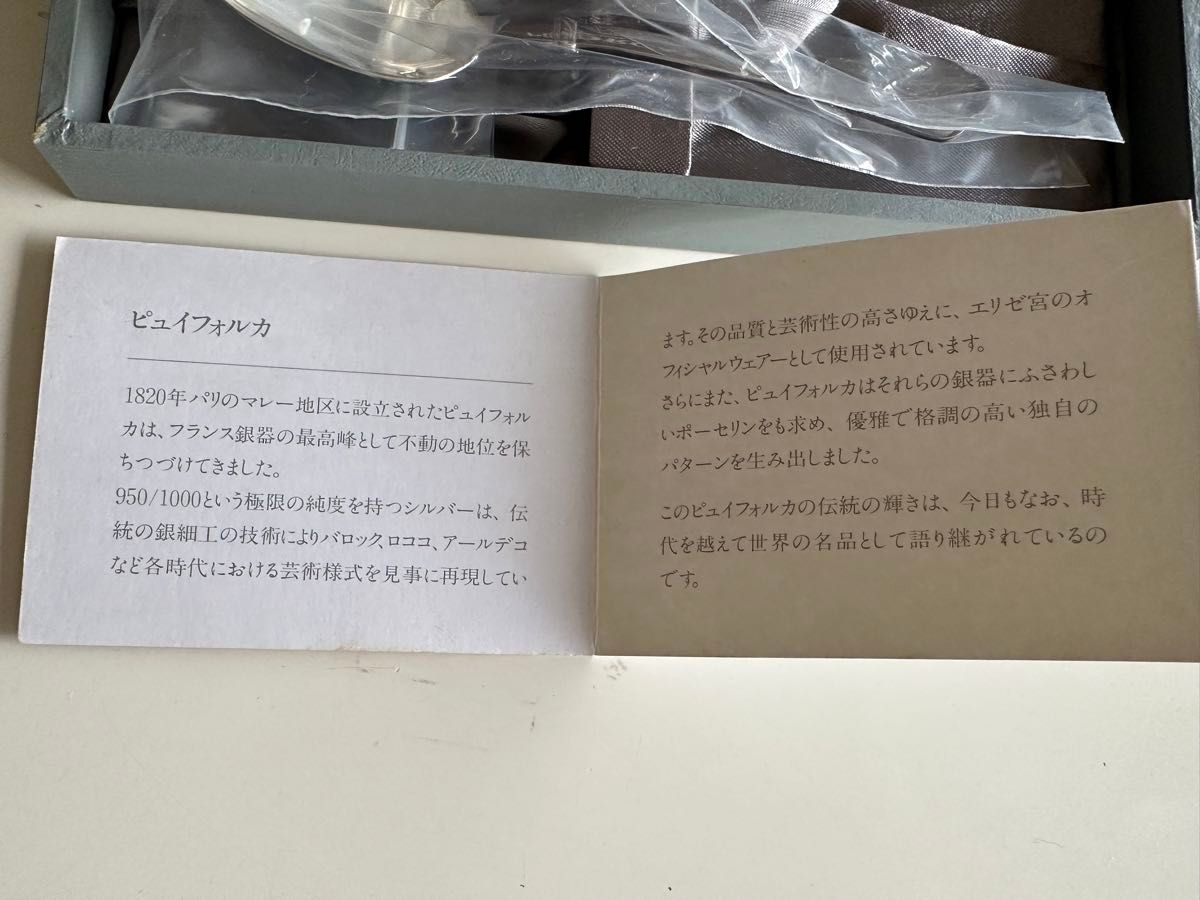 ピュイフォルカ
1820年パリのマレー地区に設立されたピュイフォル
カは、フランス銀器の最高峰として不動の地位を保
ちつづけてきました。
950/1000という極限の純度を持つシルバーは、伝
統の銀細工の技術によりバロック、ロココ、アールデコ
など各時代における芸術様式を見事に再現してい
ます。その品質と芸術性の高さゆえに、エリゼ宮のオ
フィシャルウェアーとして使用されています。
さらにまた、ピュイフォルカはそれらの銀器にふさわし
いポーセリンをも求め、優雅で格調の高い独自の
パターンを生み出しました。
このピュイフォルカの伝統の輝きは、今日もなお、時
代を越えて世界の名品として語り継がれているの
です。